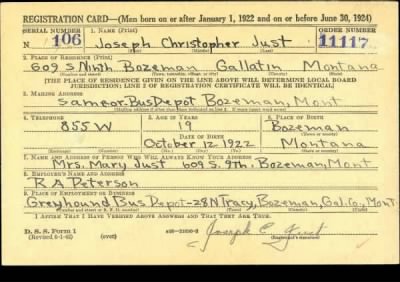 REGISTRATION CARD—(Men born on or after January 1, 1922 and on or before June 30, 1924)
SERIAL NUMBER 1. NAME (Print) ORDER NUMBER
N 106 Joseph Christopher Just 11117
(First) (Middle) (Last)
2. PLACE OF RESIDENCE (Print)
609 S Ninth Bozeman Gallatin Montana
(Number and street) (Town, township, village, or city) (County) (State)
[THE PLACE OF RESIDENCE GIVEN ON THE LINE ABOVE WILL DETERMINE LOCAL BOARD
JURISDICTION; LINE 2 OF REGISTRATION CERTIFICATE WILL BE IDENTICAL]
3. MAILING ADDRESS
Same or-Bus Depot Bozeman, Mont
4. TELEPHONE 5. AGE IN YEARS 6. PLACE OF BIRTH
855 W 19 Bozeman
DATE OF BIRTH
October 12, 1922 Montana
7. NAME AND ADDRESS OF PERSON WHO WILL ALWAYS KNOW YOUR ADDRESS
Mrs. Mary Just 609 S. 9th. Bozeman, Mont.
8. EMPLOYER'S NAME AND ADDRESS
R A Peterson
9. PLACE OF EMPLOYMENT OR BUSINESS
Greyhound Bus Depot-28 N Tracy, Bozeman, Gal. Co, Mont.
I AFFIRM THAT I HAVE VERIFIED ABOVE ANSWERS AND THAT THEY ARE TRUE.
D. S. S. Form 1
(Revised 6-1-42) (over) Joseph C Just